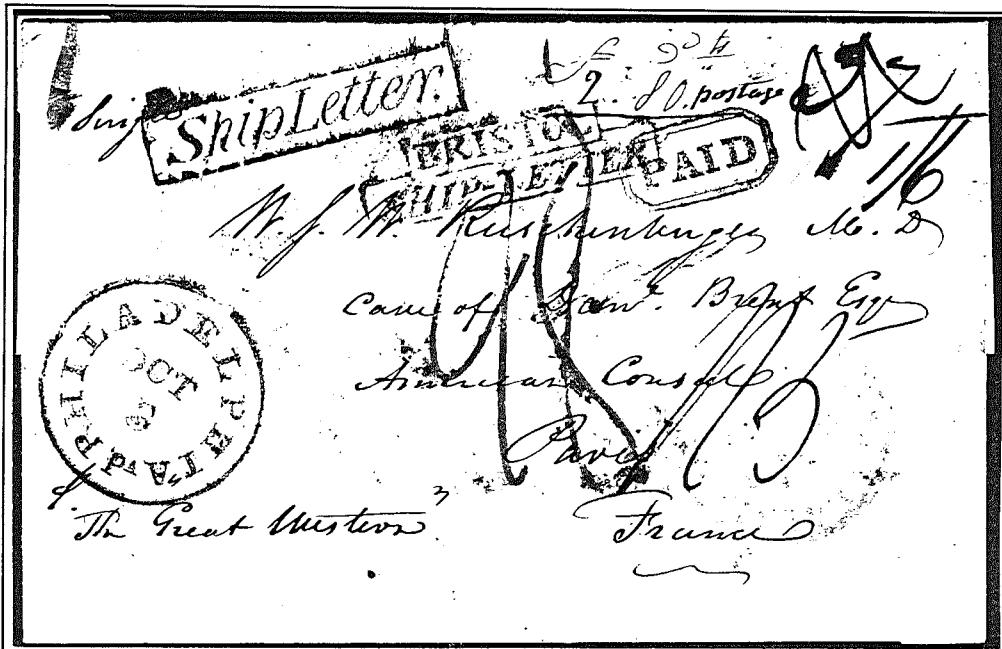 Single
Ship Letter.
2.. 80. postage
BRISTOL
SHIP-LETTER
PAID
1/6
W. S. W. Ruschenberger M. D
Care of Danl. Brent Esqr
American Consul
Paris
France
PHILADELPHIA Pa
OCT
"The Great Western"